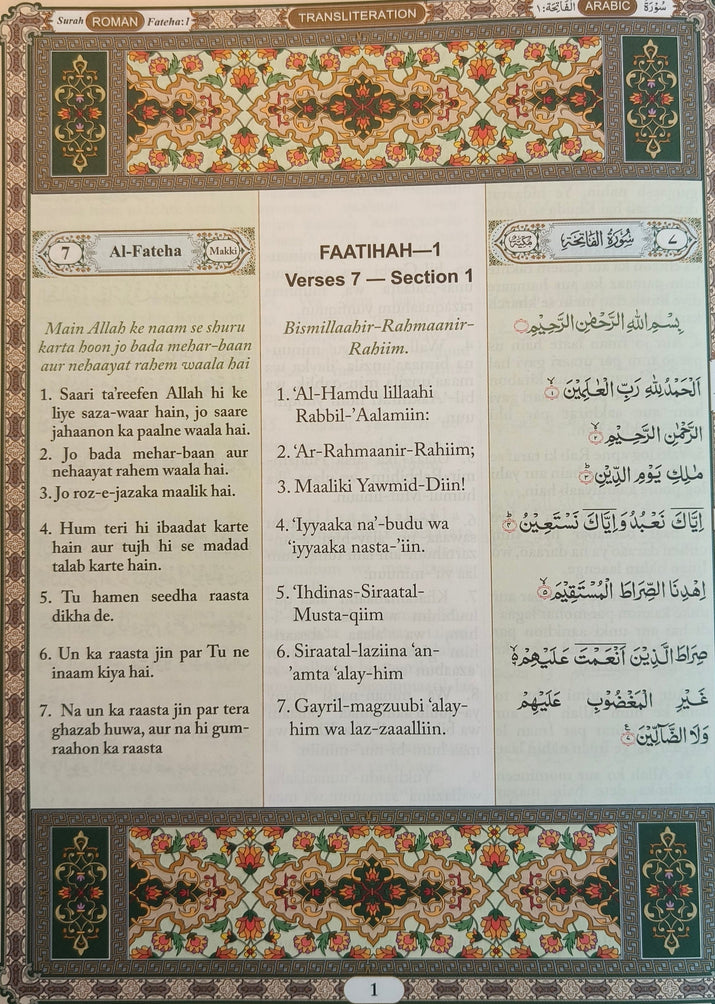 Surah ROMAN Fateha:1
TRANSLITERATION
الْفَاتِحَة:١ ARABIC سُوْرَةُ
7 Al-Fateha Makki
Main Allah ke naam se shuru
karta hoon jo bada mehar-baan
aur nehaayat rahem waala hai
1. Saari ta'reefen Allah hi ke
liye saza-waar hain, jo saare
jahaanon ka paalne waala hai.
2. Jo bada mehar-baan aur
nehaayat rahem waala hai.
3. Jo roz-e-jazaka maalik hai.
4. Hum teri hi ibaadat karte
hain aur tujh hi se madad
talab karte hain.
5. Tu hamen seedha raasta
dikha de.
6. Un ka raasta jin par Tu ne
inaam kiya hai.
7. Na un ka raasta jin par tera
ghazab huwa, aur na hi gum-
raahon ka raasta
FAATIHAH—1
Verses 7 — Section 1
Bismillaahir-Rahmaanir-
Rahiim.
1. ‘Al-Hamdu lillaahi
Rabbil-’Aalamiin:
2. ‘Ar-Rahmaanir-Rahiim;
3. Maaliki Yawmid-Diin!
4. ‘Iyyaaka na’-budu wa
‘iyyaaka nasta-’iin.
5. ‘Ihdinas-Siraatal-
Musta-qiim
6. Siraatal-laziina ‘an-
‘amta ‘alay-him
7. Gayril-magzuubi ‘alay-
him wa laz-zaaalliin.
٧ سُوْرَةُ الْفَاتِحَةِ مَكِّيَّةٌ
بِسْمِ اللهِ الرَّحْمٰنِ الرَّحِيْمِ
اَلْحَمْدُ لِلّٰهِ رَبِّ الْعٰلَمِيْنَ ۙ ١
الرَّحْمٰنِ الرَّحِيْمِ ۙ ٢
مٰلِكِ يَوْمِ الدِّيْنِ ؕ ٣
اِيَّاكَ نَعْبُدُ وَ اِيَّاكَ نَسْتَعِيْنُ ؕ ٤
اِهْدِنَا الصِّرَاطَ الْمُسْتَقِيْمَ ۙ ٥
صِرَاطَ الَّذِيْنَ اَنْعَمْتَ عَلَيْهِمْ ۙ ٦
غَيْرِ الْمَغْضُوْبِ عَلَيْهِمْ
وَلَا الضَّآلِّيْنَ ٧
1